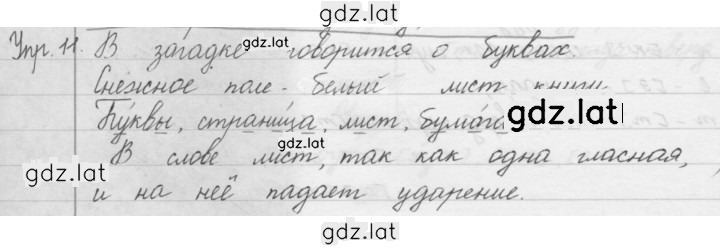 gdz.lat
Упр. 11. В загадке говорится о буквах.
gdz.lat
Снежное поле - белый лист книги.
gdz.lat
Буквы, страница, лист, бумага
gdz.lat
gdz.lat
В слове лист, так как одна гласная,
gdz.lat
и на неё падает ударение.
gdz.lat